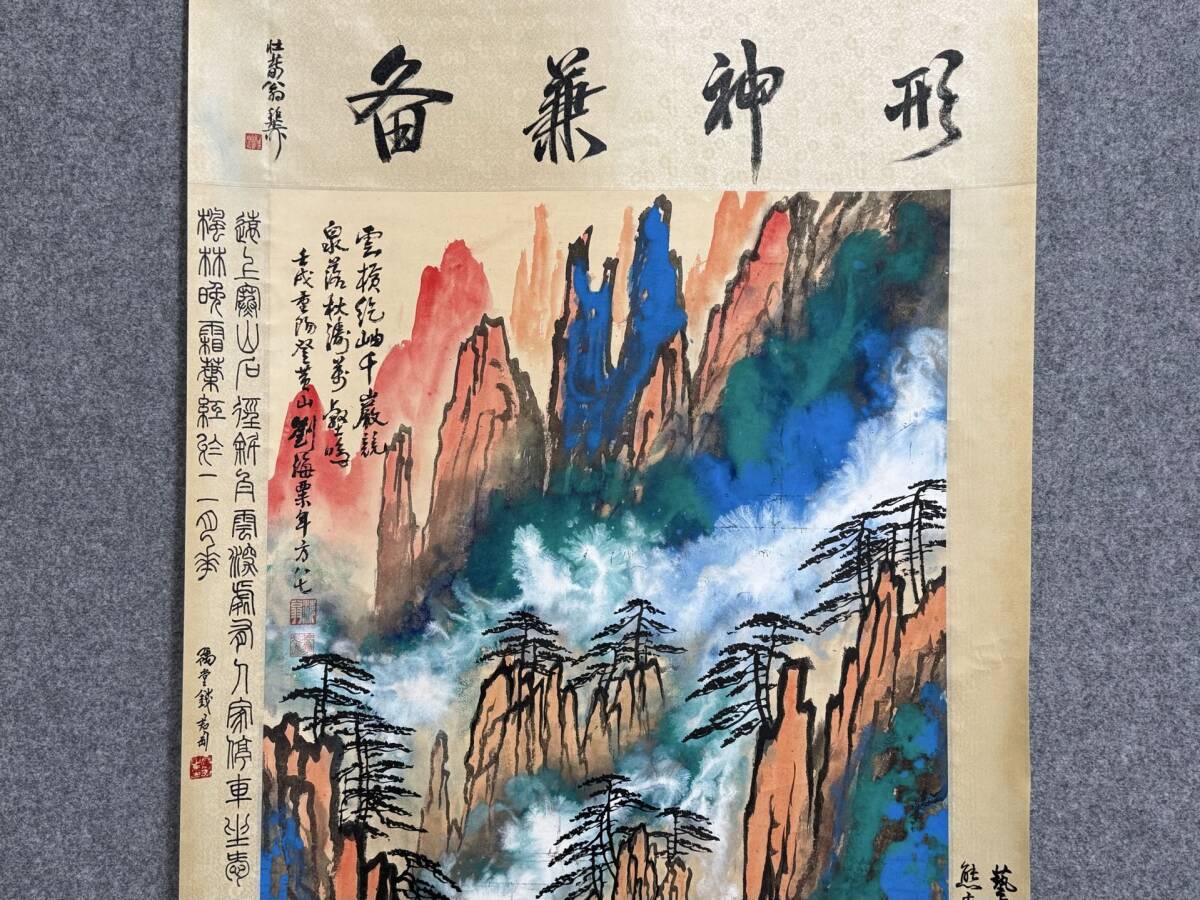 形神兼备
壮暮翁稚柳
雲橫絕岫千巖競
泉落秋濤萬壑鳴
壬戌重陽登黃山劉海粟年方八七
遠上寒山石徑斜白雲深處有人家停車坐愛
楓林晚霜葉紅於二月華
豫堂錢君匋
藝